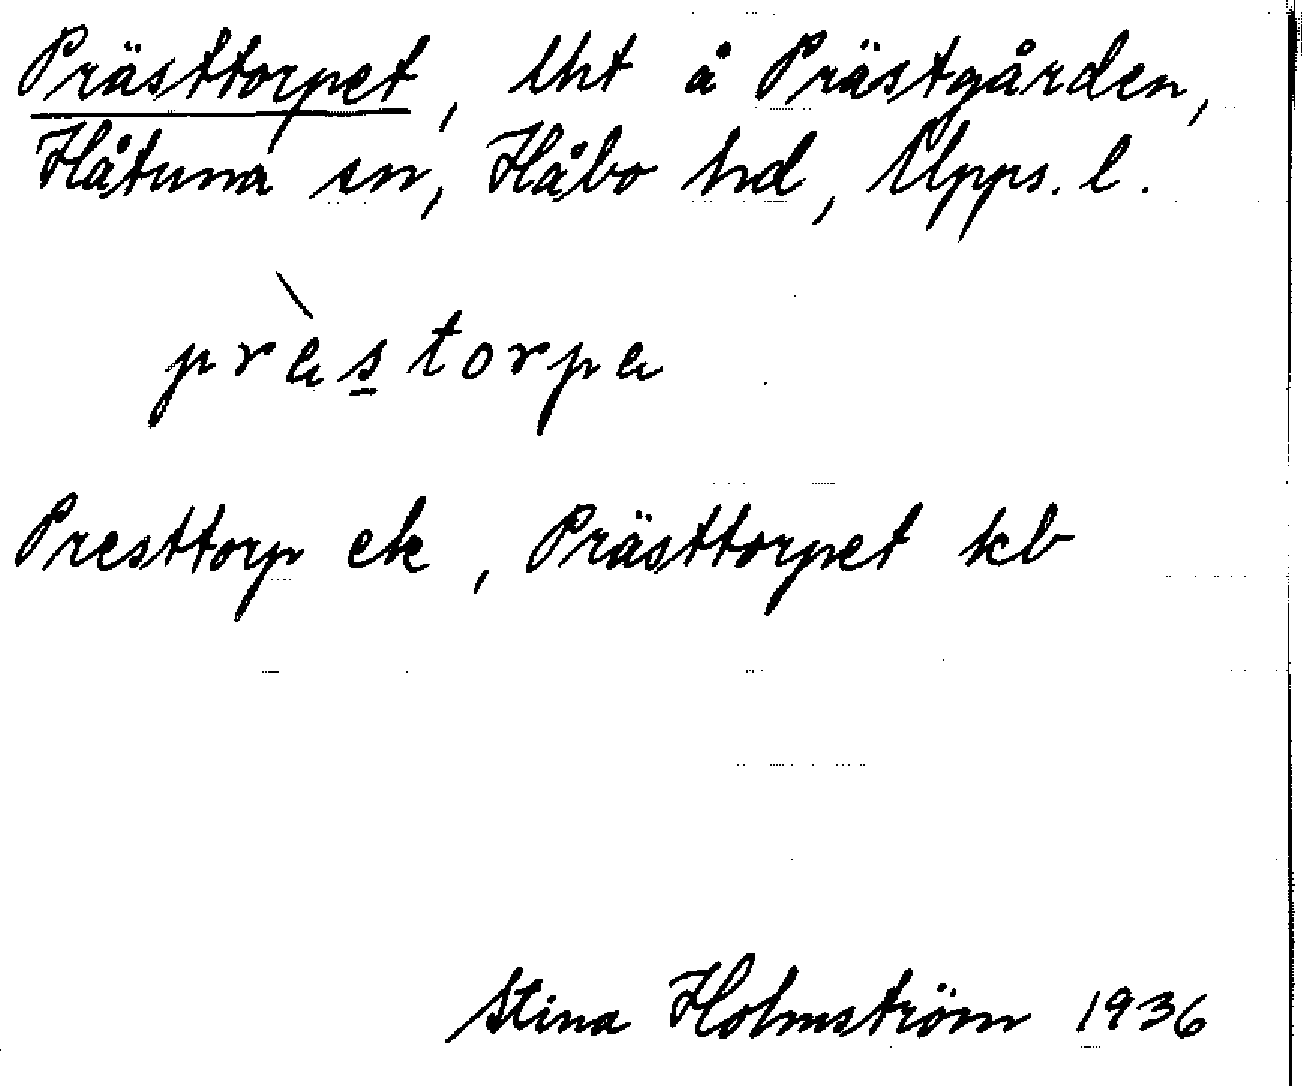 Prästtorpet, lht å Prästgården,
Håtuna sn, Håbo hd, Upps. l.
præ̀s̲torpa
Presttorp ek, Prästtorpet kb
Stina Holmström 1936